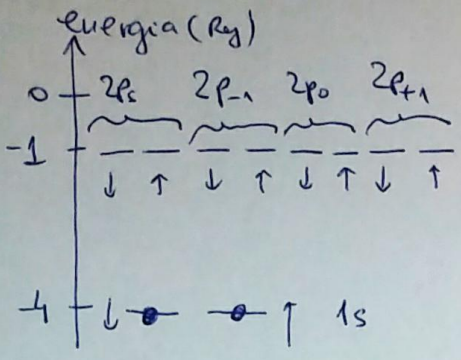 energia (Ry)
0 2ps 2p-1 2p0 2p+1
-1
↓ ↑ ↓ ↑ ↓ ↑ ↓ ↑
-4 ↓ ↑ 1s